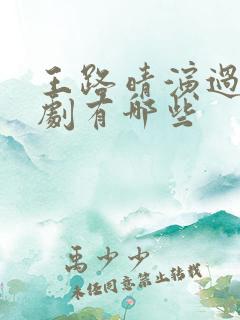 王路晴演過
劇有哪些
禹少少
未经同意禁止转载